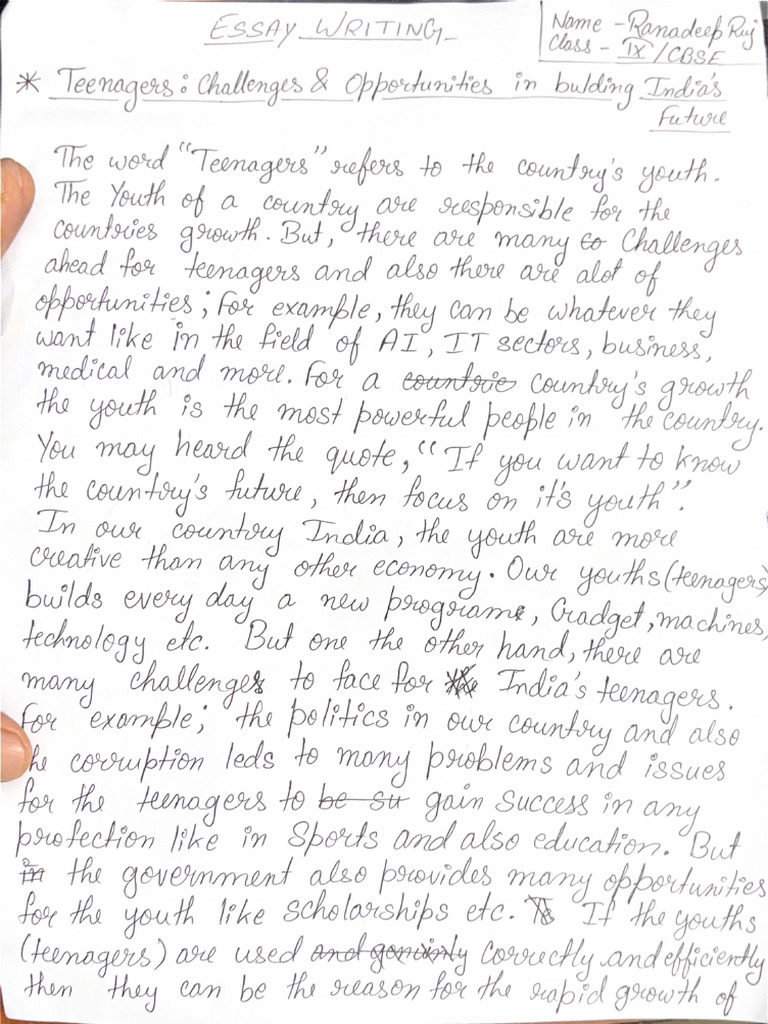 ESSAY WRITING
Name - Ranadeep Ruj
Class - IX/CBSE
* Teenagers: Challenges & Opportunities in bulding India's
Future
The word "Teenagers" refers to the country's youth.
The Youth of a country are responsible for the
countries growth. But, there are many co Challenges
ahead for teenagers and also there are alot of
opportunities; For example, they can be whatever they
want like in the field of AI, IT sectors, business,
medical and more. For a countrie country's growth
the youth is the most powerful people in the country.
You may heard the quote, "If you want to know
the country's future, then focus on it's youth".
In our country India, the youth are more
creative than any other economy. Our youths (teenagers)
builds every day a new programe, Gradget, machines,
technology etc. But one the other hand, there are
many challenges to face for the India's teenagers.
For example; the politics in our country and also
he corruption leds to many problems and issues
for the teenagers to be su gain success in any
profection like in Sports and also education. But
in the government also provides many opportunities
for the youth like scholarships etc. If the youths
(teenagers) are used and correctly and efficiently
then they can be the reason for the rapid growth of